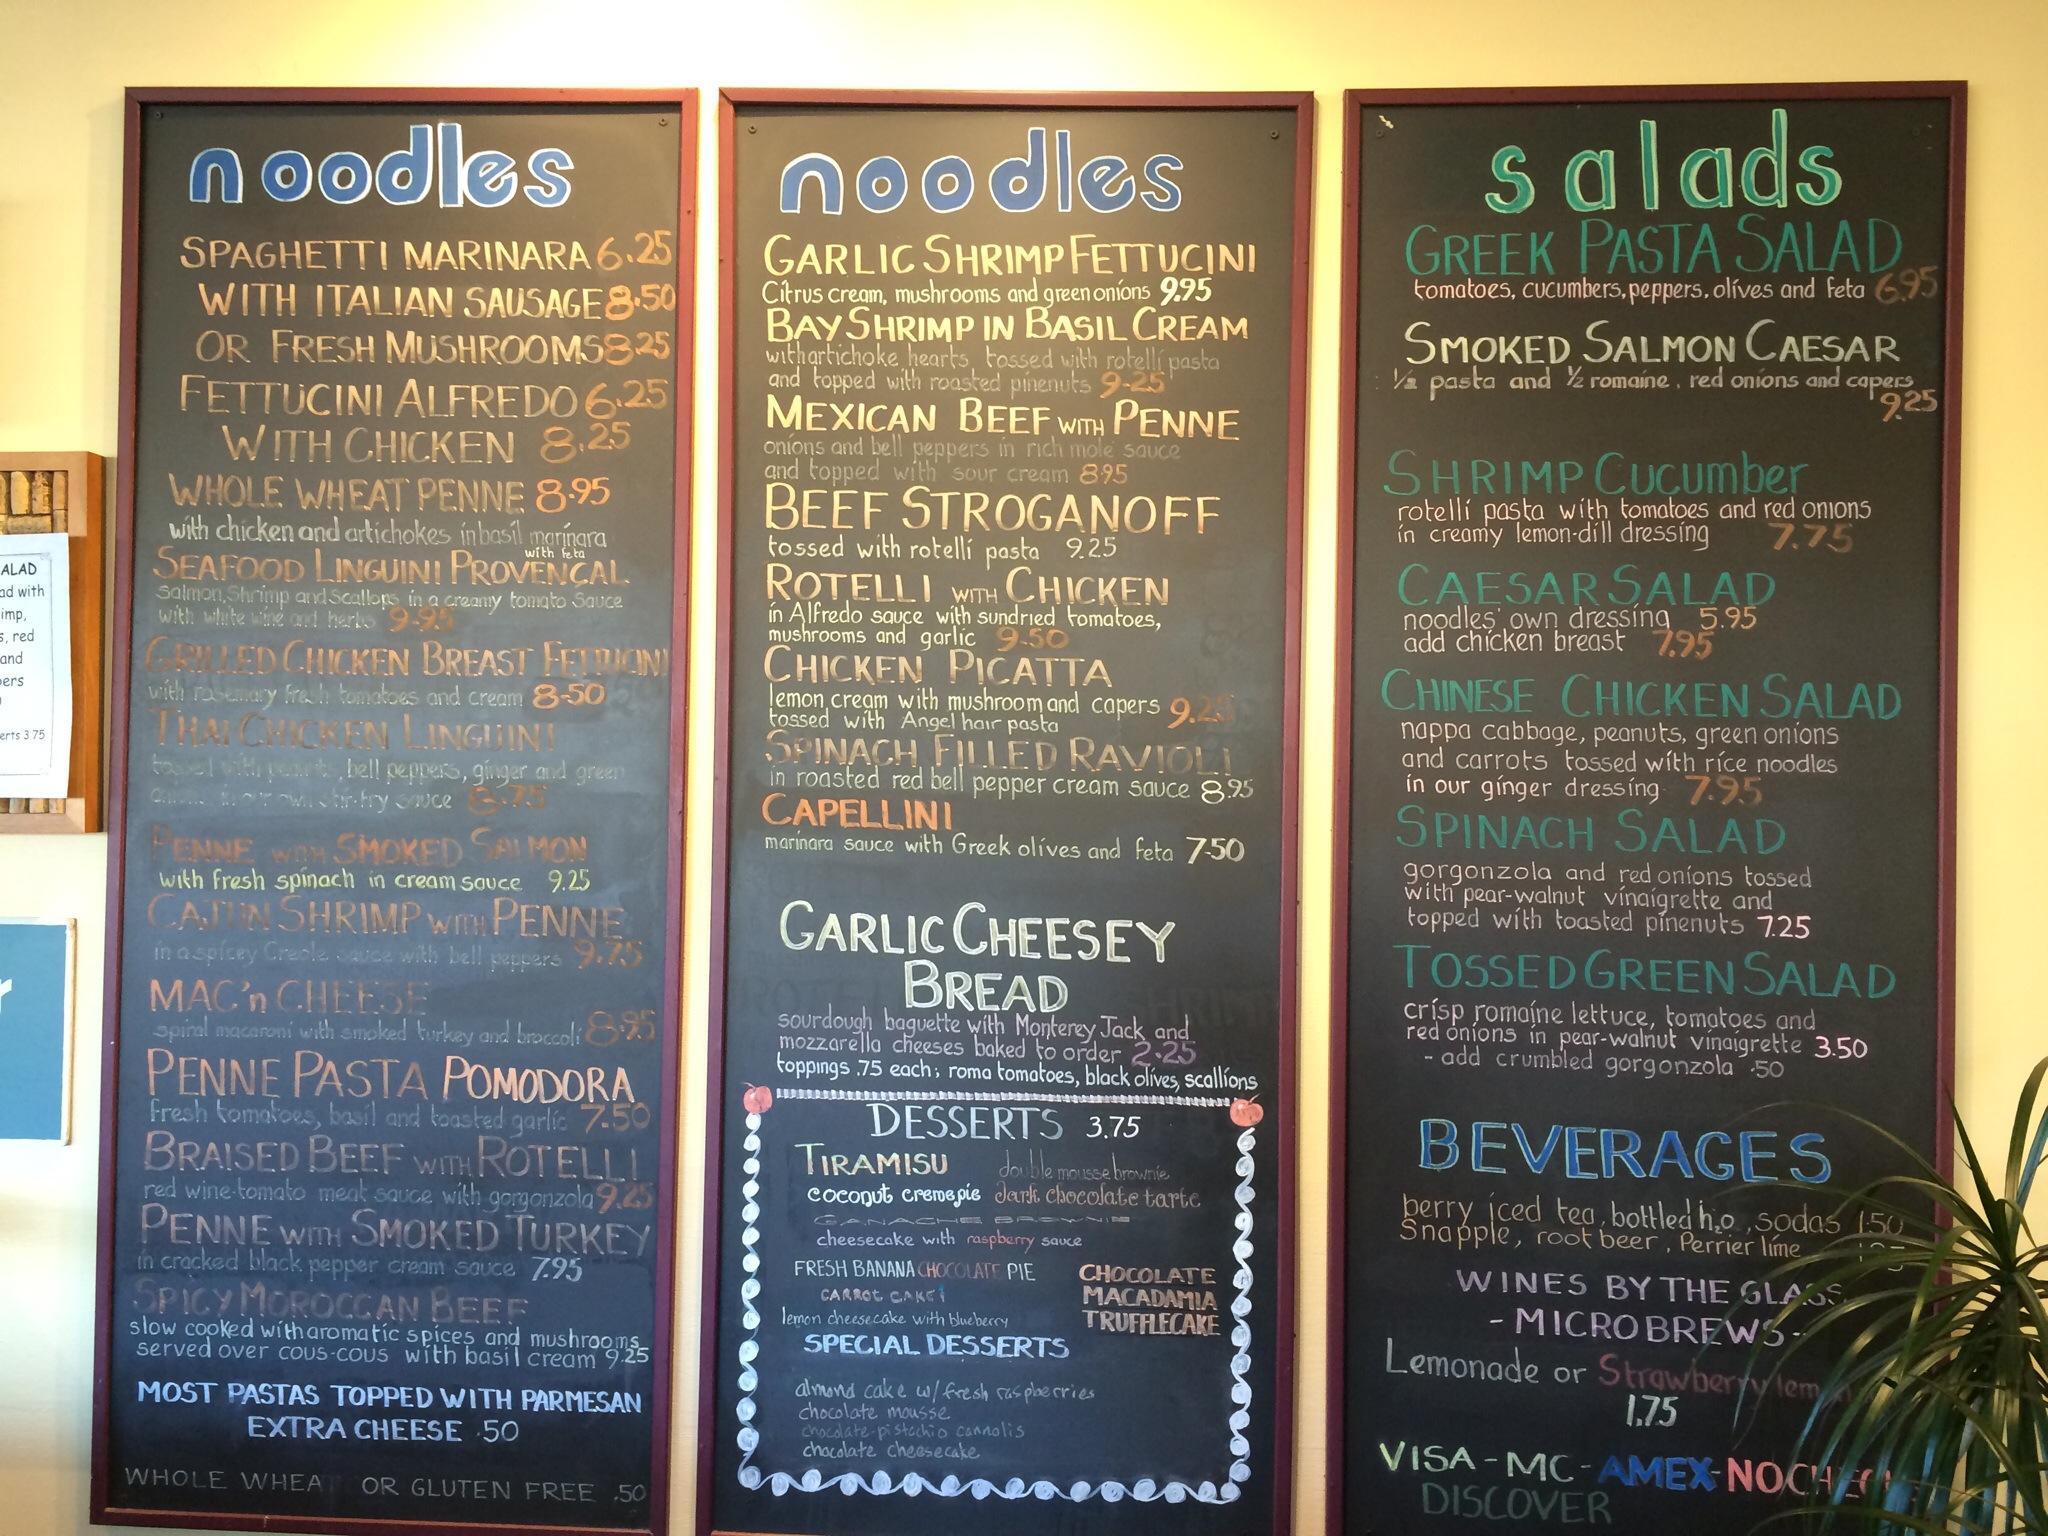 noodles
SPAGHETTI MARINARA 6.25
WITH ITALIAN SAUSAGE 8.50
OR FRESH MUSHROOMS 8.25
FETTUCINI ALFREDO 6.25
WITH CHICKEN 8.25
WHOLE WHEAT PENNE 8.95
with chicken and artichokes in basil marinara
with feta
SEAFOOD LINGUINI PROVENCAL
Salmon, Shrimp and Scallops in a creamy tomato sauce
with white wine and herbs 9.95
GRILLED CHICKEN BREAST FETTUCINI
with rosemary fresh tomatoes and cream 8.50
THAI CHICKEN LINGUINI
tossed with peanuts, bell peppers, ginger and green
onions in our own stir-fry sauce 8.75
PENNE WITH SMOKED SALMON
with fresh spinach in cream sauce 9.25
CAJUN SHRIMP WITH PENNE
in a spicey Creole sauce with bell peppers 9.75
MAC'n CHEESE
spiral macaroni with smoked turkey and broccoli 8.95
PENNE PASTA POMODORA
fresh tomatoes, basil and toasted garlic 7.50
BRAISED BEEF WITH ROTELLI
red wine-tomato meat sauce with gorgonzola 9.25
PENNE WITH SMOKED TURKEY
in cracked black pepper cream sauce 7.95
SPICY MOROCCAN BEEF
slow cooked with aromatic spices and mushrooms
served over cous-cous with basil cream 9.25
MOST PASTAS TOPPED WITH PARMESAN
EXTRA CHEESE .50
WHOLE WHEA OR GLUTEN FREE .50
noodles
GARLIC SHRIMP FETTUCINI
Citrus cream, mushrooms and green onions 9.95
BAY SHRIMP IN BASIL CREAM
with artichoke hearts tossed with rotelli pasta
and topped with roasted pinenuts 9.25
MEXICAN BEEF WITH PENNE
onions and bell peppers in rich mole sauce
and topped with sour cream 8.95
BEEF STROGANOFF
tossed with rotelli pasta 9.25
ROTELLI WITH CHICKEN
in Alfredo sauce with sundried tomatoes,
mushrooms and garlic 9.50
CHICKEN PICATTA
lemon cream with mushroom and capers 9.25
tossed with Angel hair pasta
SPINACH FILLED RAVIOLI
in roasted red bell pepper cream sauce 8.95
CAPELLINI
marinara sauce with Greek olives and feta 7.50
GARLIC CHEESEY
BREAD
sourdough baguette with Monterey Jack and
mozzarella cheeses baked to order 2.25
toppings .75 each; roma tomatoes, black olives, scallions
DESSERTS 3.75
TIRAMISU double mousse brownie
coconut creme pie dark chocolate tarte
GANACHE BROWNIE
cheesecake with raspberry sauce
FRESH BANANA CHOCOLATE PIE
CARROT CAKE!
lemon cheesecake with blueberry
CHOCOLATE
MACADAMIA
TRUFFLECAKE
SPECIAL DESSERTS
almond cake w/ fresh raspberries
chocolate mousse
chocolate-pistachio cannolis
chocolate cheesecake
salads
GREEK PASTA SALAD
tomatoes, cucumbers, peppers, olives and feta 6.95
SMOKED SALMON CAESAR
1/2 pasta and 1/2 romaine, red onions and capers
9.25
SHRIMP CUCUMBER
rotelli pasta with tomatoes and red onions
in creamy lemon-dill dressing 7.75
CAESAR SALAD
noodles' own dressing 5.95
add chicken breast 7.95
CHINESE CHICKEN SALAD
nappa cabbage, peanuts, green onions
and carrots tossed with rice noodles
in our ginger dressing 7.95
SPINACH SALAD
gorgonzola and red onions tossed
with pear-walnut vinaigrette and
topped with toasted pinenuts 7.25
TOSSED GREEN SALAD
crisp romaine lettuce, tomatoes and
red onions in pear-walnut vinaigrette 3.50
- add crumbled gorgonzola .50
BEVERAGES
berry iced tea, bottled h2o, sodas 1.50
Snapple, root beer, Perrier lime
WINES BY THE GLASS
- MICROBREWS -
Lemonade or Strawberry lem
1.75
VISA - MC - AMEX - NO CHEC
DISCOVER
ALAD
ad with
imp,
s, red
and
pers
erts 3.75
r